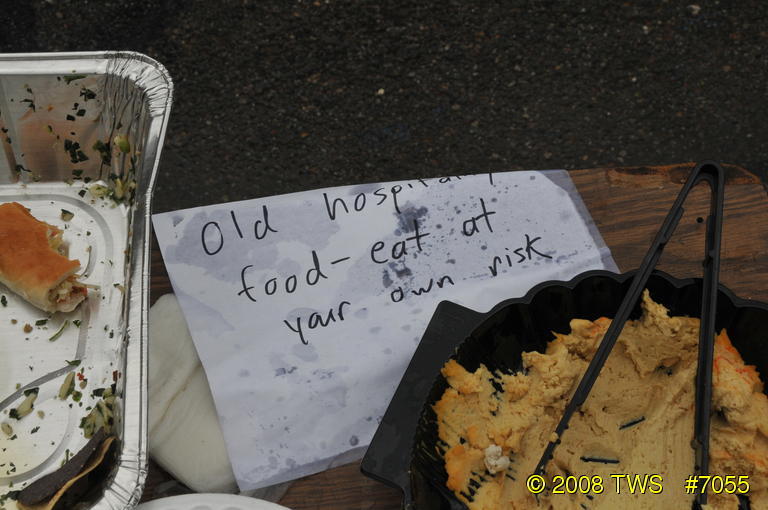 Old hospitality
food- eat at
your own risk
© 2008 TWS #7055